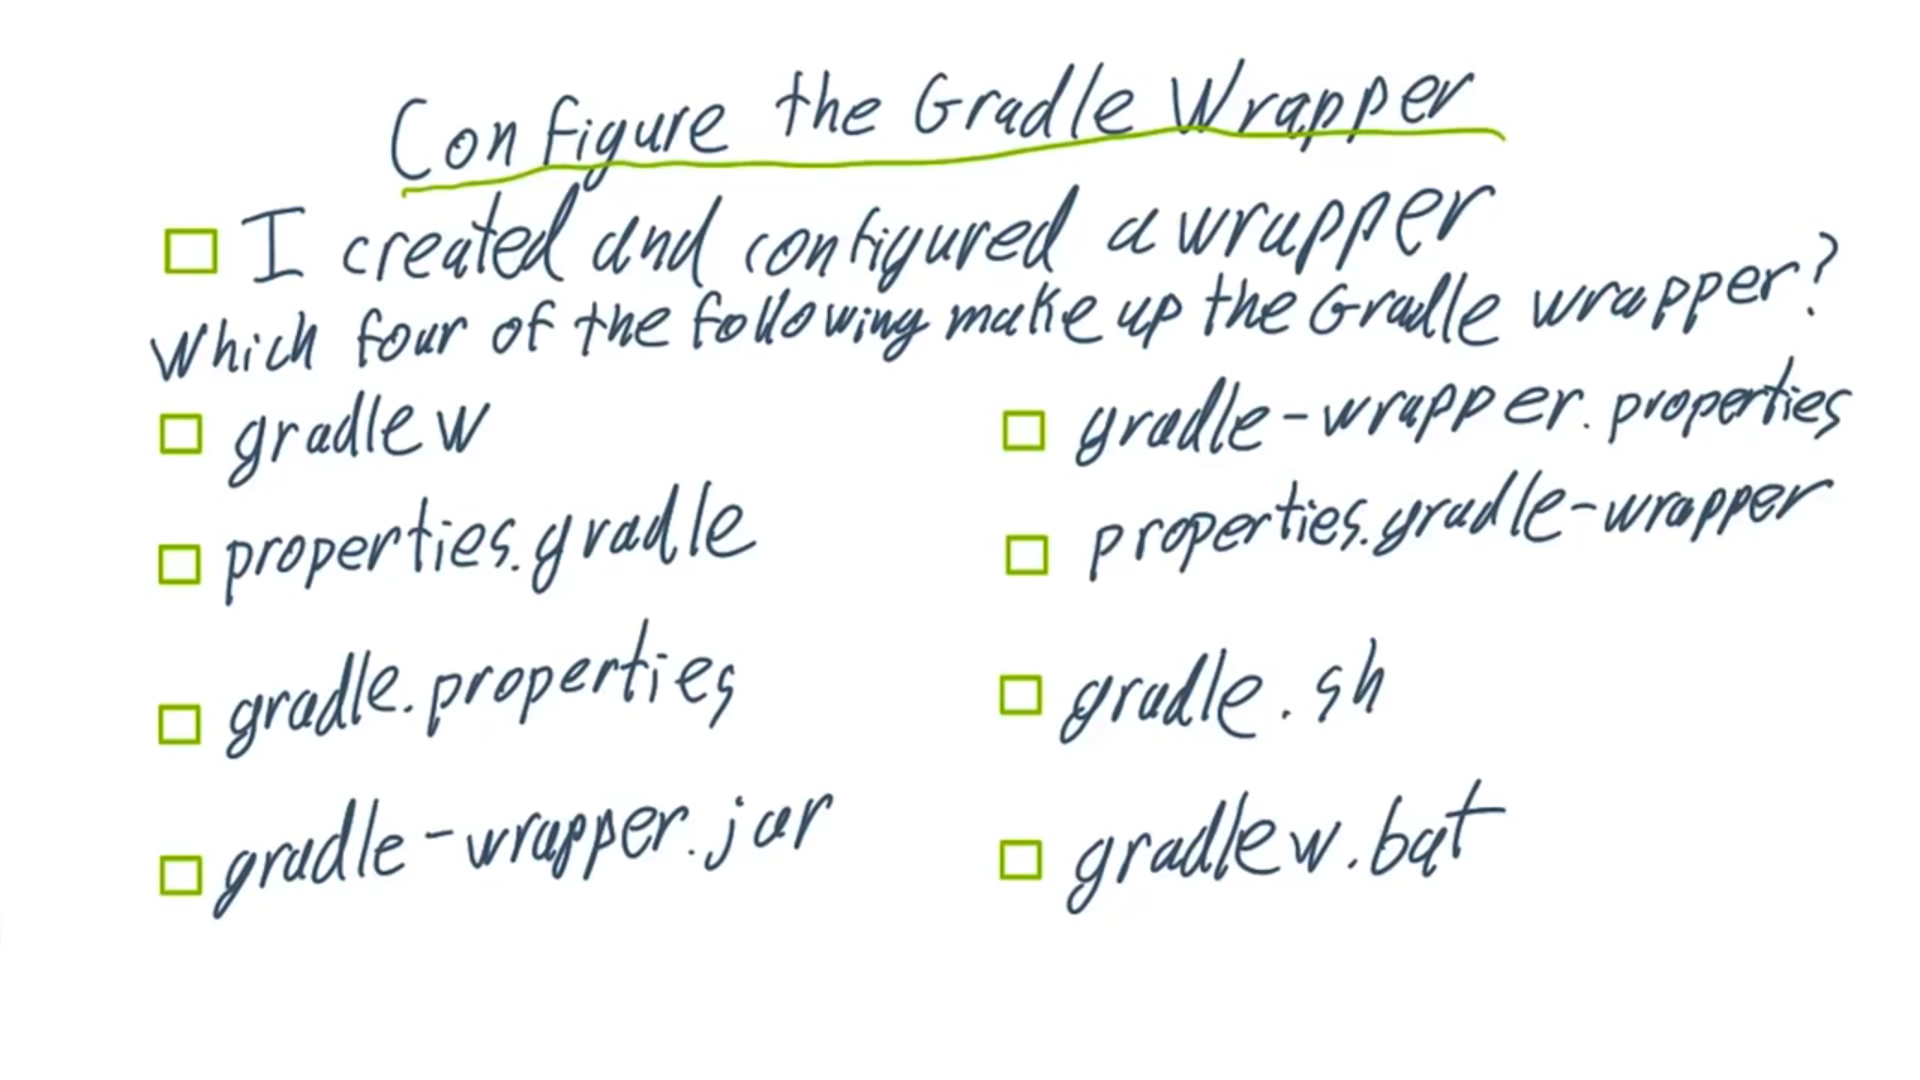 Configure the Gradle Wrapper
I created and configured a wrapper
Which four of the following make up the Gradle wrapper?
gradlew
gradle-wrapper.properties
properties.gradle
properties.gradle-wrapper
gradle.properties
gradle.sh
gradle-wrapper.jar
gradlew.bat